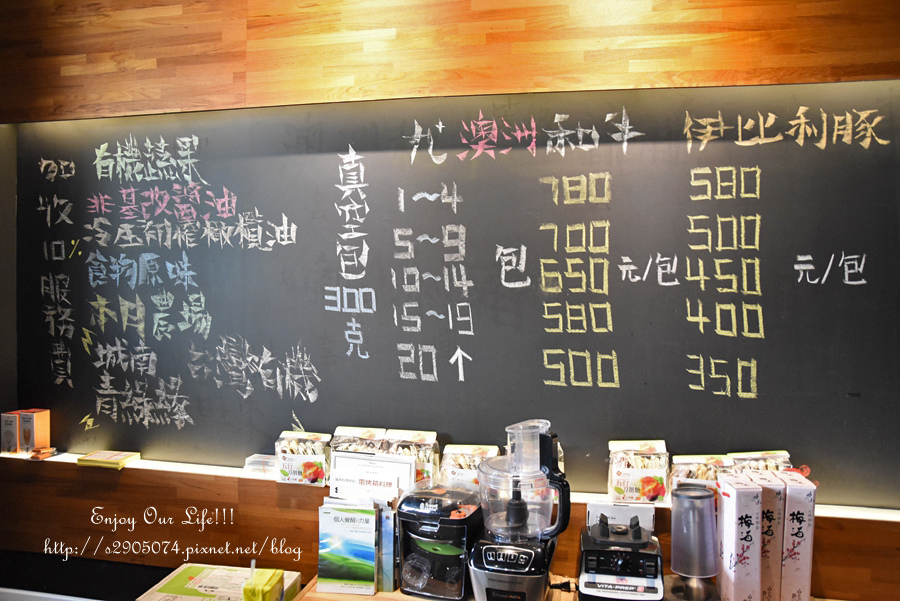 加收10%服務費
有機蔬果
非基改醬油
冷压初榨橄欖油
食物原味
本月農場
城南
台灣有機
青綠緣
真空包300克
九⁺ 澳洲和牛
伊比利豚
1~4 780 580
5~9 700 500
10~14 包 650 元/包 450 元/包
15~19 580 400
20↑ 500 350
梅酒
梅酒
VITA-PREP
Enjoy Our Life!!!
http://s2905074.pixnet.net/blog